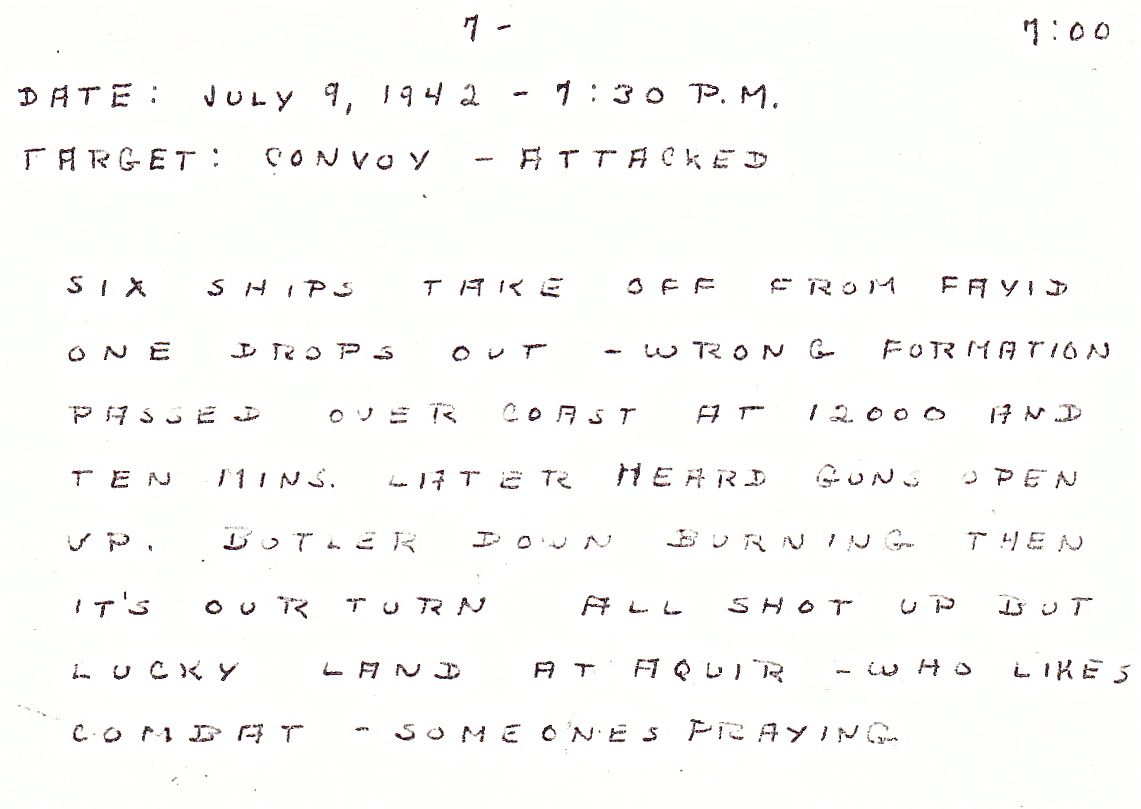 7 - 7:00
DATE: JULY 9, 1942 - 7:30 P.M.
TARGET: CONVOY - ATTACKED
SIX SHIPS TAKE OFF FROM FAYID
ONE DROPS OUT - WRONG FORMATION
PASSED OVER COAST AT 12000 AND
TEN MINS. LATER HEARD GUNS OPEN
UP. BUTLER DOWN BURNING THEN
IT'S OUR TURN ALL SHOT UP BUT
LUCKY LAND AT AQUIR - WHO LIKES
COMBAT - SOMEONES PRAYING